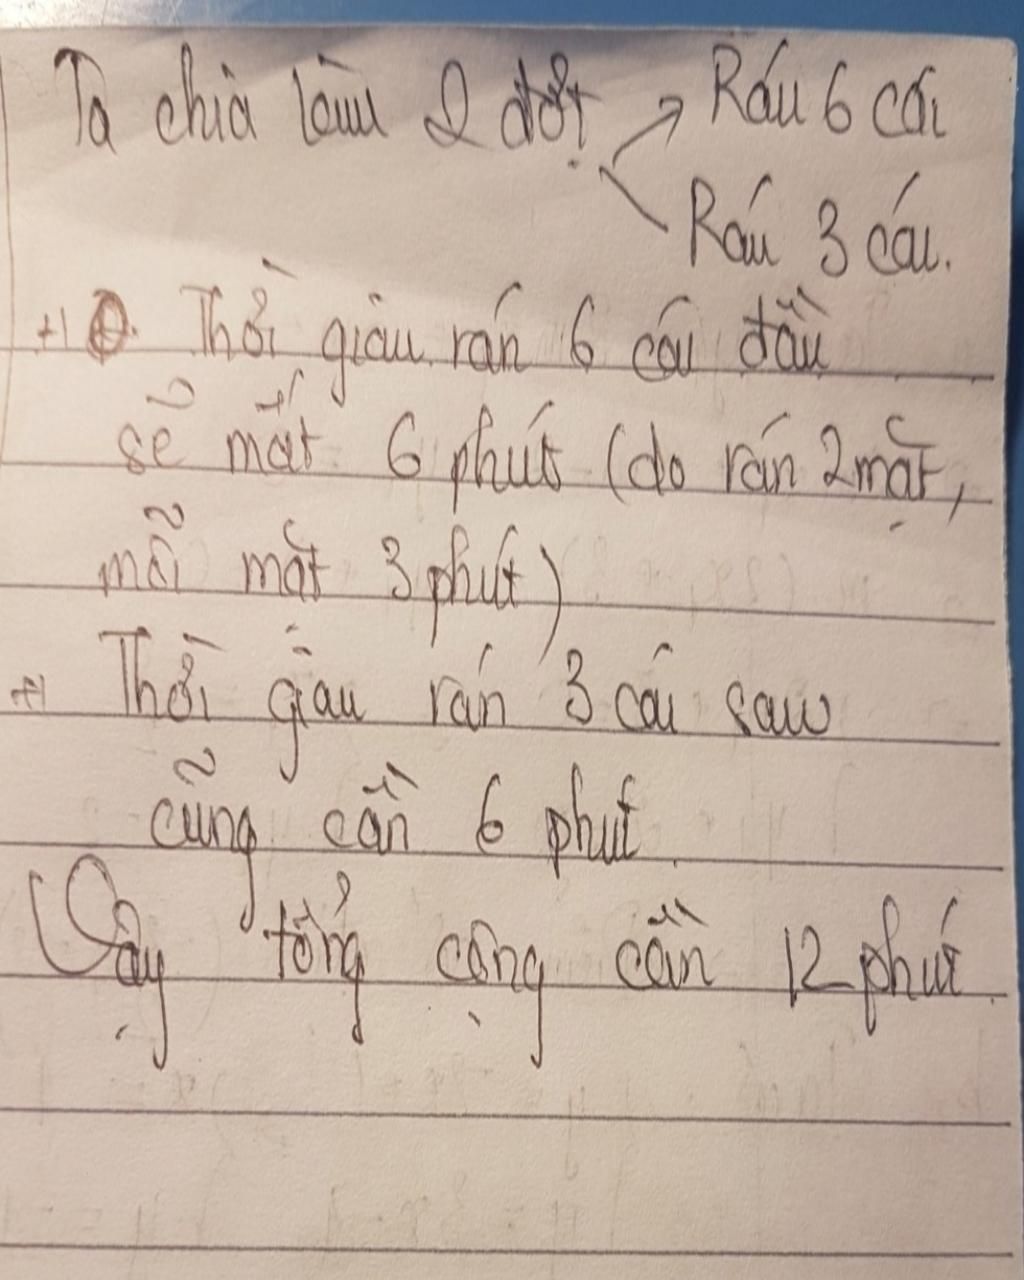 Ta chia làm 2 đợt → Rán 6 cái
Rán 3 cái.
+) Thời gian rán 6 cái đầu
sẽ mất 6 phút (do rán 2 mặt,
mỗi mặt 3 phút)
+) Thời gian rán 3 cái sau
cũng cần 6 phút.
Vậy tổng cộng cần 12 phút.